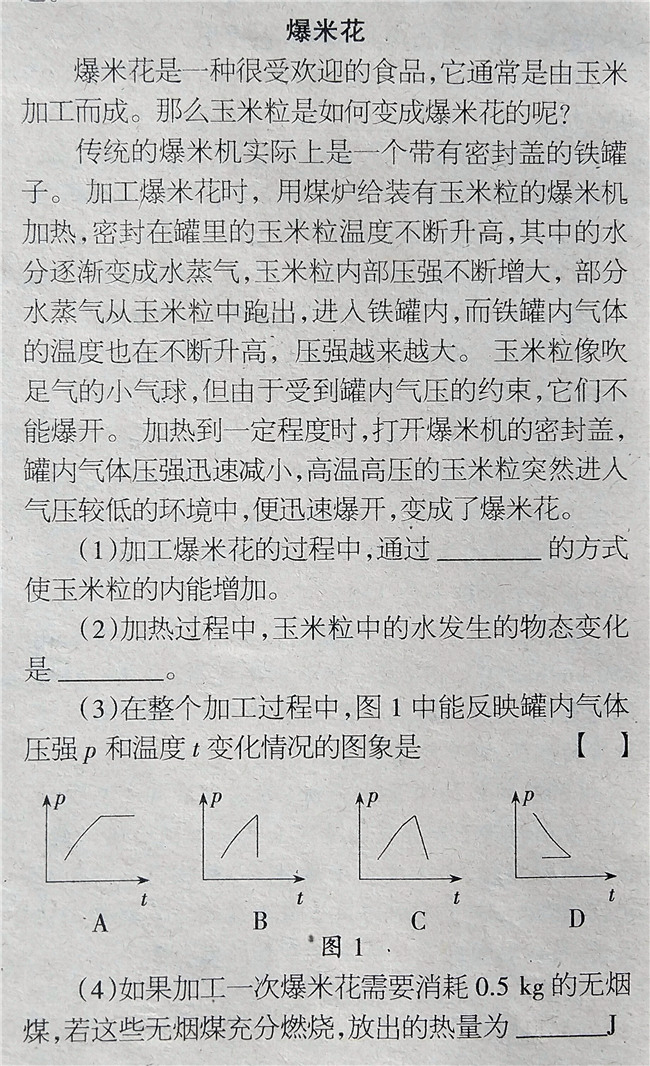 爆米花
爆米花是一种很受欢迎的食品,它通常是由玉米
加工而成。那么玉米粒是如何变成爆米花的呢?
传统的爆米机实际上是一个带有密封盖的铁罐
子。加工爆米花时,用煤炉给装有玉米粒的爆米机
加热,密封在罐里的玉米粒温度不断升高,其中的水
分逐渐变成水蒸气,玉米粒内部压强不断增大,部分
水蒸气从玉米粒中跑出,进入铁罐内,而铁罐内气体
的温度也在不断升高,压强越来越大。玉米粒像吹
足气的小气球,但由于受到罐内气压的约束,它们不
能爆开。加热到一定程度时,打开爆米机的密封盖,
罐内气体压强迅速减小,高温高压的玉米粒突然进入
气压较低的环境中,便迅速爆开,变成了爆米花。
(1)加工爆米花的过程中,通过________的方式
使玉米粒的内能增加。
(2)加热过程中,玉米粒中的水发生的物态变化
是________。
(3)在整个加工过程中,图1中能反映罐内气体
压强p和温度t变化情况的图象是 【 】
p p p p
t t t t
A B C D
图1
(4)如果加工一次爆米花需要消耗0.5 kg的无烟
煤,若这些无烟煤充分燃烧,放出的热量为_______J